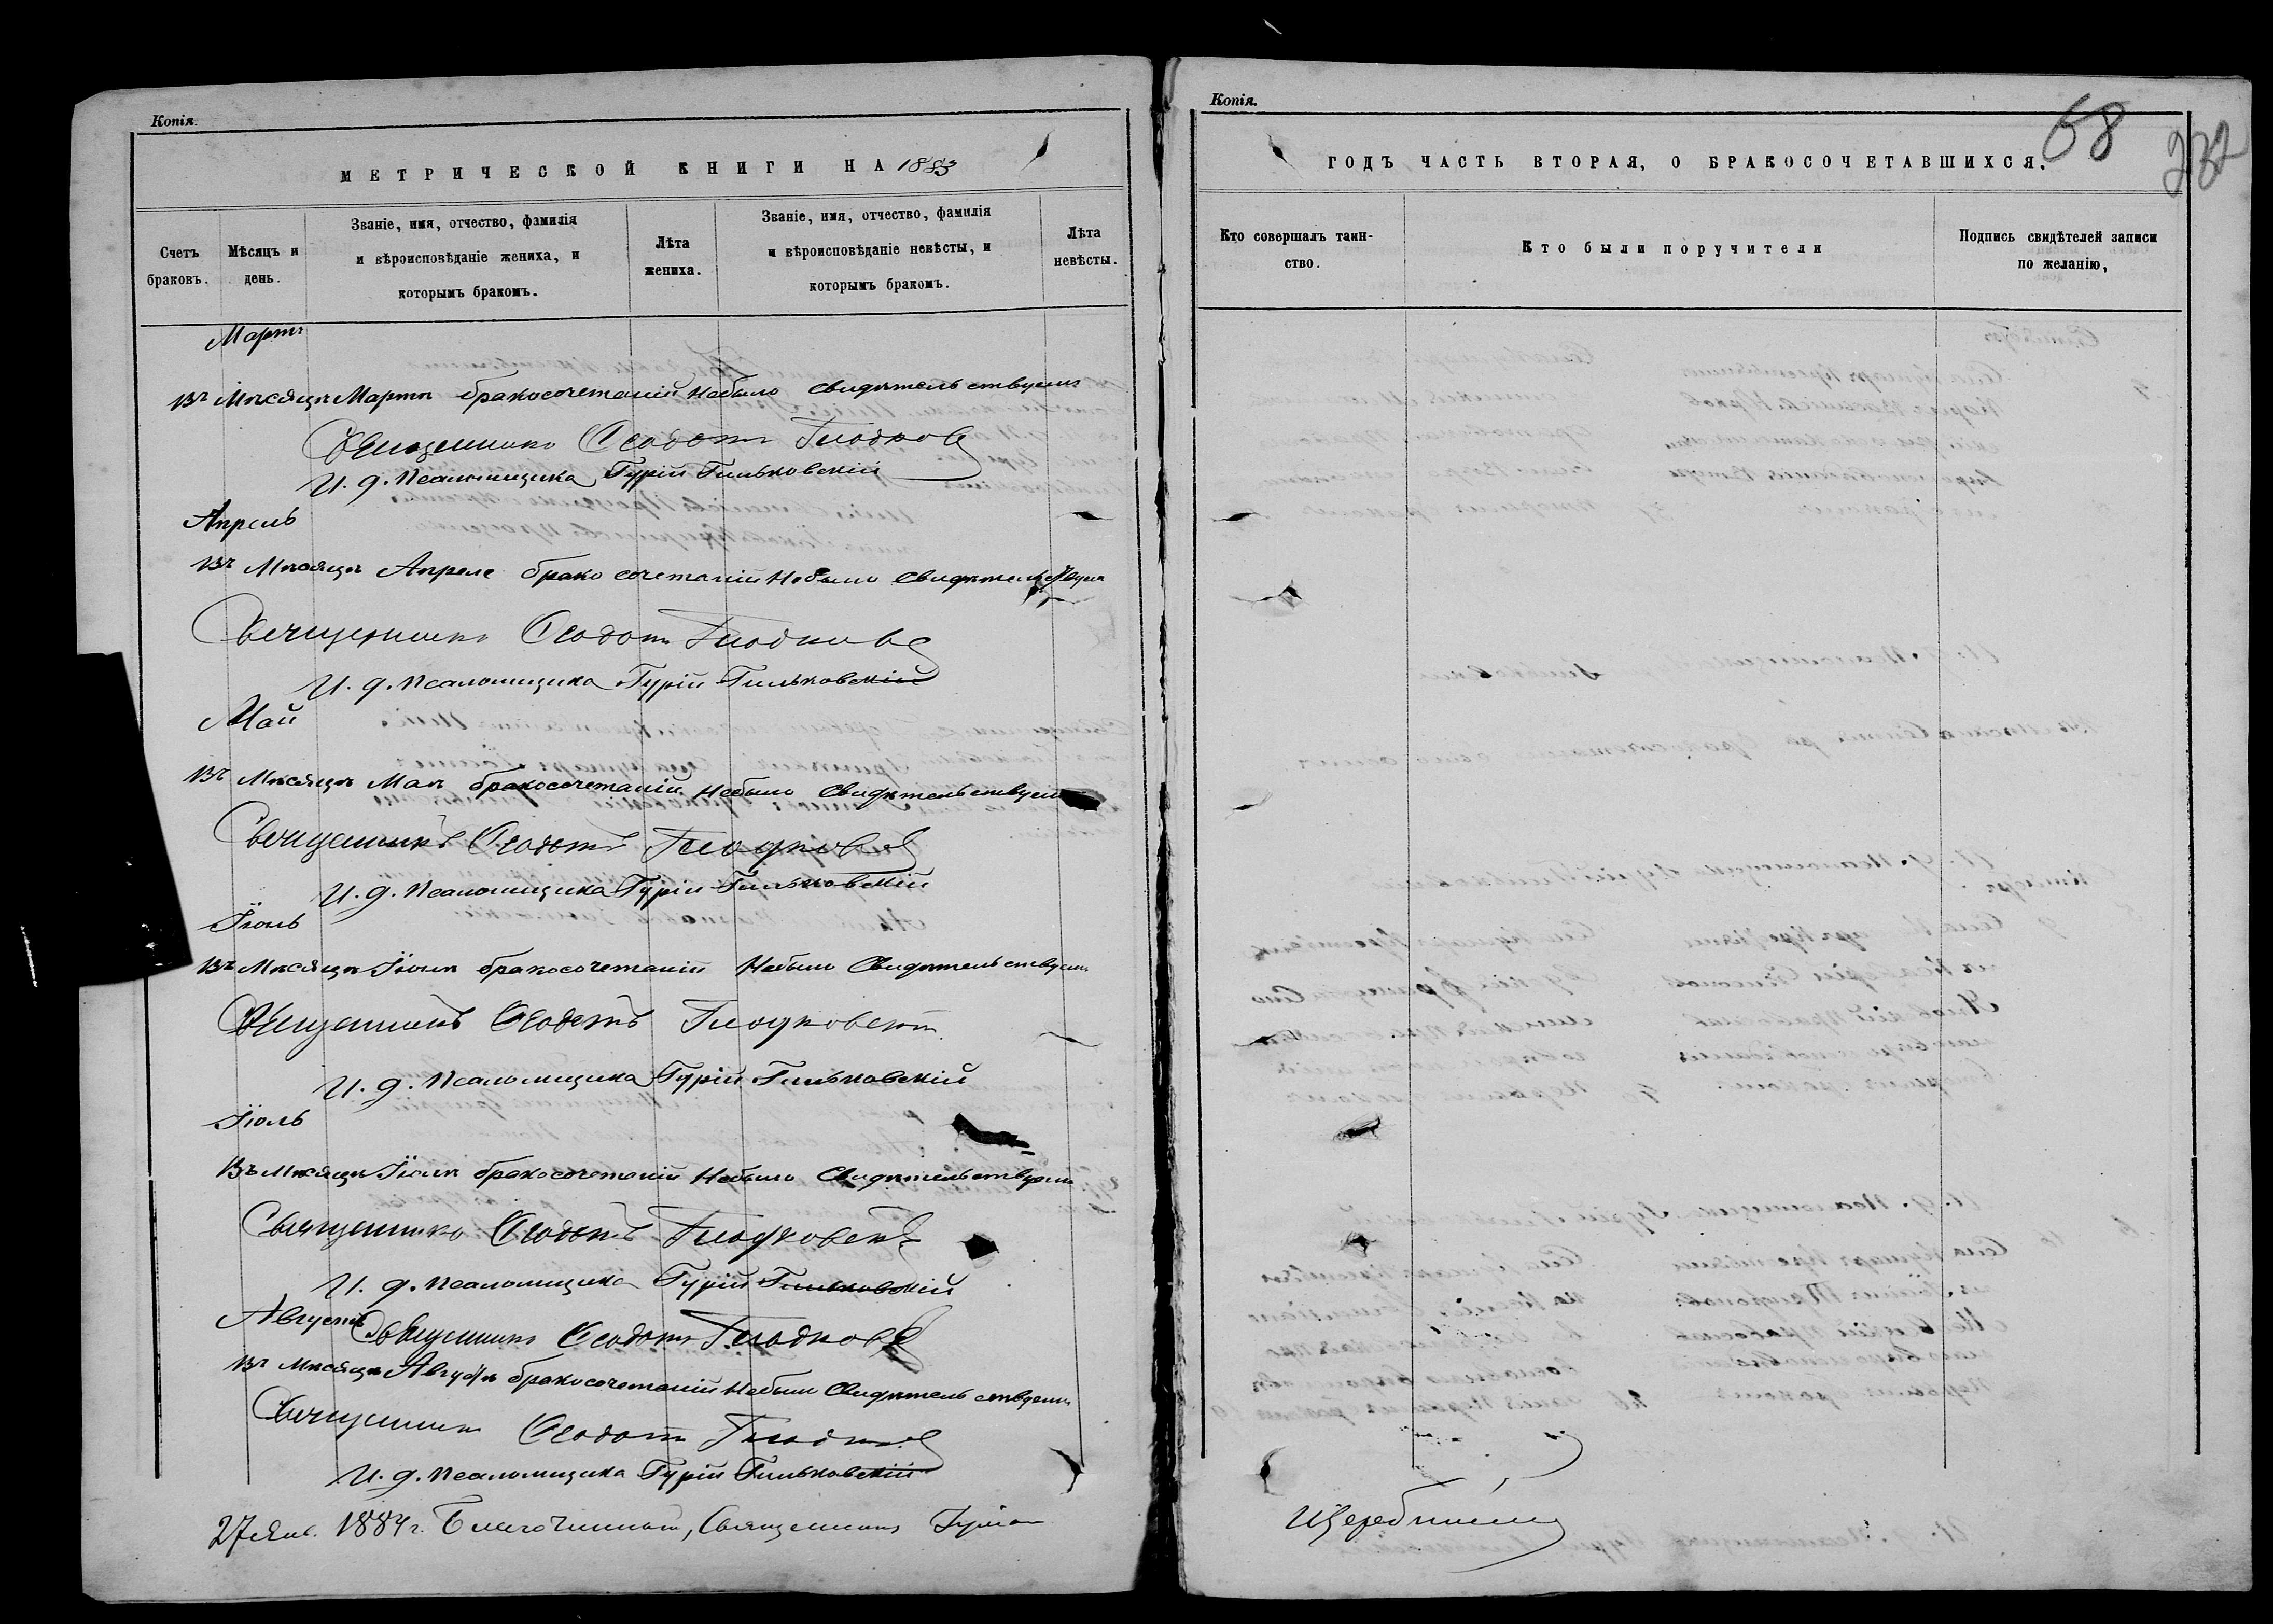 Копія.
МЕТРИЧЕСКОЙ КНИГИ НА 1883
Счетъ браковъ.
Мѣсяцъ и день.
Званіе, имя, отчество, фамилія и вѣроисповѣданіе жениха, и которымъ бракомъ.
Лѣта жениха.
Званіе, имя, отчество, фамилія и вѣроисповѣданіе невѣсты, и которымъ бракомъ.
Лѣта невѣсты.
Мартъ
Въ Мѣсяцѣ Мартѣ бракосочетаній Небыло Свидѣтельствуемъ
Священникъ Ѳеодотъ
И. д. Псаломщика Гурій Гильковскій
Апрель
Въ Мѣсяцѣ Апреле бракосочетаній Небыло Свидѣтельствуемъ
Священникъ Ѳеодотъ
И. д. Псаломщика Гурій Гильковскій
Май
Въ Мѣсяцѣ Маѣ бракосочетаній Небыло Свидѣтельствуемъ
Священникъ Ѳеодотъ
И. д. Псаломщика Гурій Гильковскій
Іюнь
Въ Мѣсяцѣ Іюнѣ бракосочетаній Небыло Свидѣтельствуемъ
Священникъ Ѳеодотъ
И. д. Псаломщика Гурій Гильковскій
Іюль
Въ Мѣсяцѣ Іюлѣ бракосочетаній Небыло Свидѣтельствуемъ
Священникъ Ѳеодотъ
И. д. Псаломщика Гурій Гильковскій
Августъ
Священникъ Ѳеодотъ
Въ Мѣсяцѣ Августѣ бракосочетаній Небыло Свидѣтельствуемъ
Священникъ Ѳеодотъ
И. д. Псаломщика Гурій Гильковскій
27 Янв. 1884 г. Благочинный, Священникъ
Копія.
68
232
ГОДЪ ЧАСТЬ ВТОРАЯ, О БРАКОСОЧЕТАВШИХСЯ.
Кто совершалъ таинство.
Кто были поручители
Подпись свидѣтелей записи по желанію,